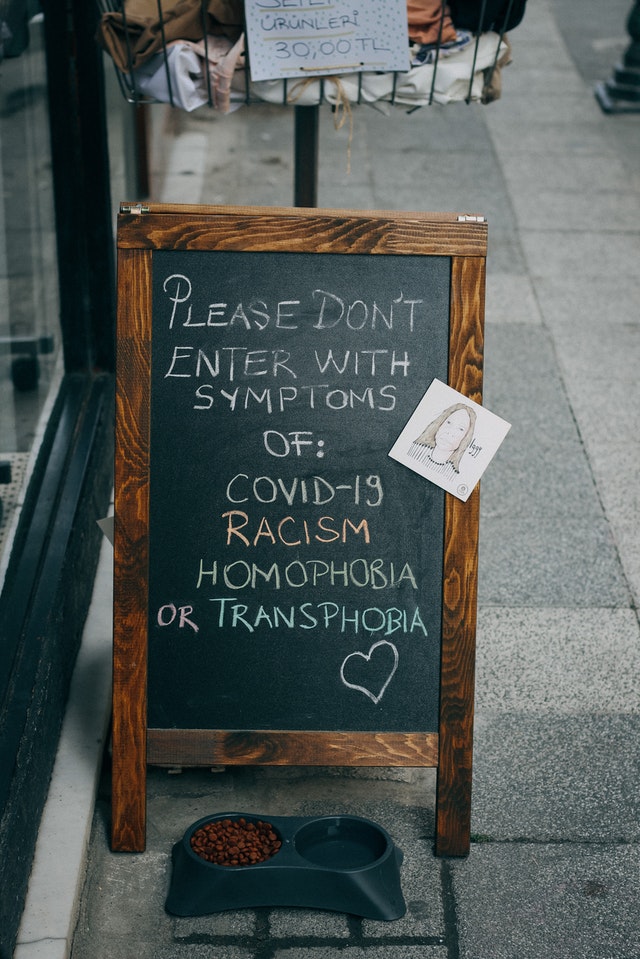 ÜRÜNLERİ
30,00 TL
PLEASE DON'T
ENTER WITH
SYMPTOMS
OF:
COVID-19
RACISM
HOMOPHOBIA
OR TRANSPHOBIA